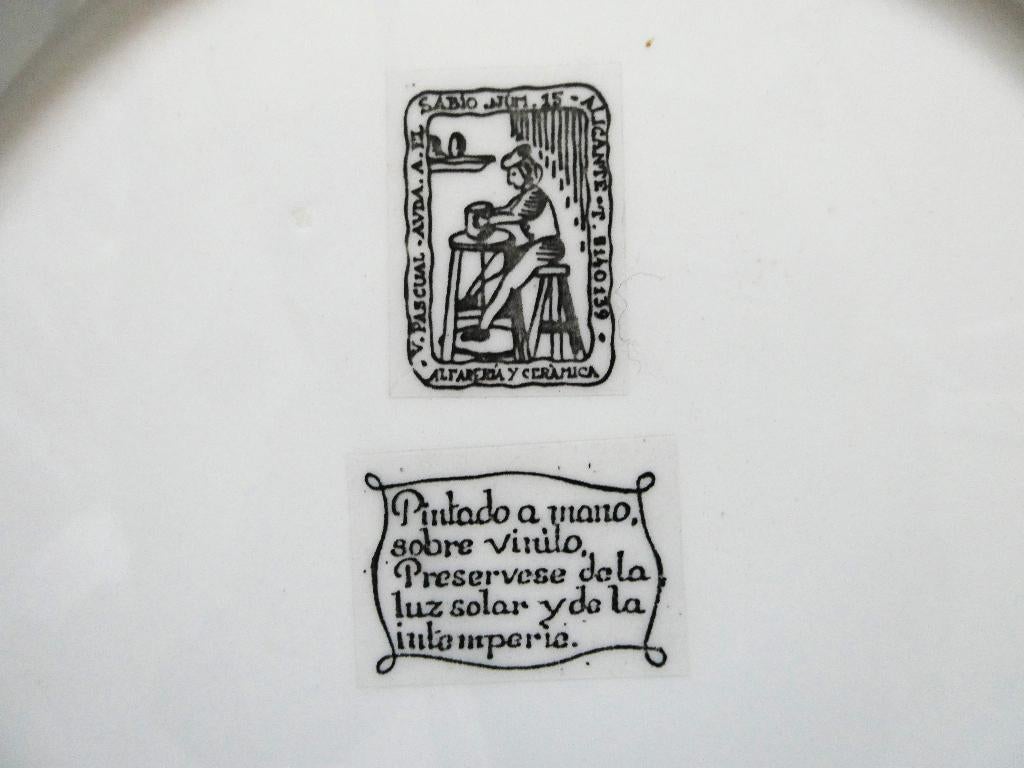 V. PASCUAL - AVDA. A. EL SABIO NÚM. 15 - ALICANTE - T. 5140139 -
ALFARERÍA Y CERÀMICA
Pintado a mano,
sobre vinilo,
Preservese de la
luz solar y de la
intemperie.